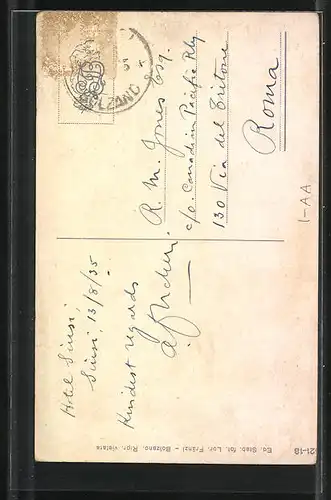 Hotel Siusi,
Siusi, 13/8/35
Kindest regards
BOLZANO
R. M. Jones Esq.
c/o. Canadian Pacific Rly
130 Via del Tritone
Roma
1-AA
Ed. Stab. fot. Lor. Fränzl - Bolzano. Ripr. vietata
21-18